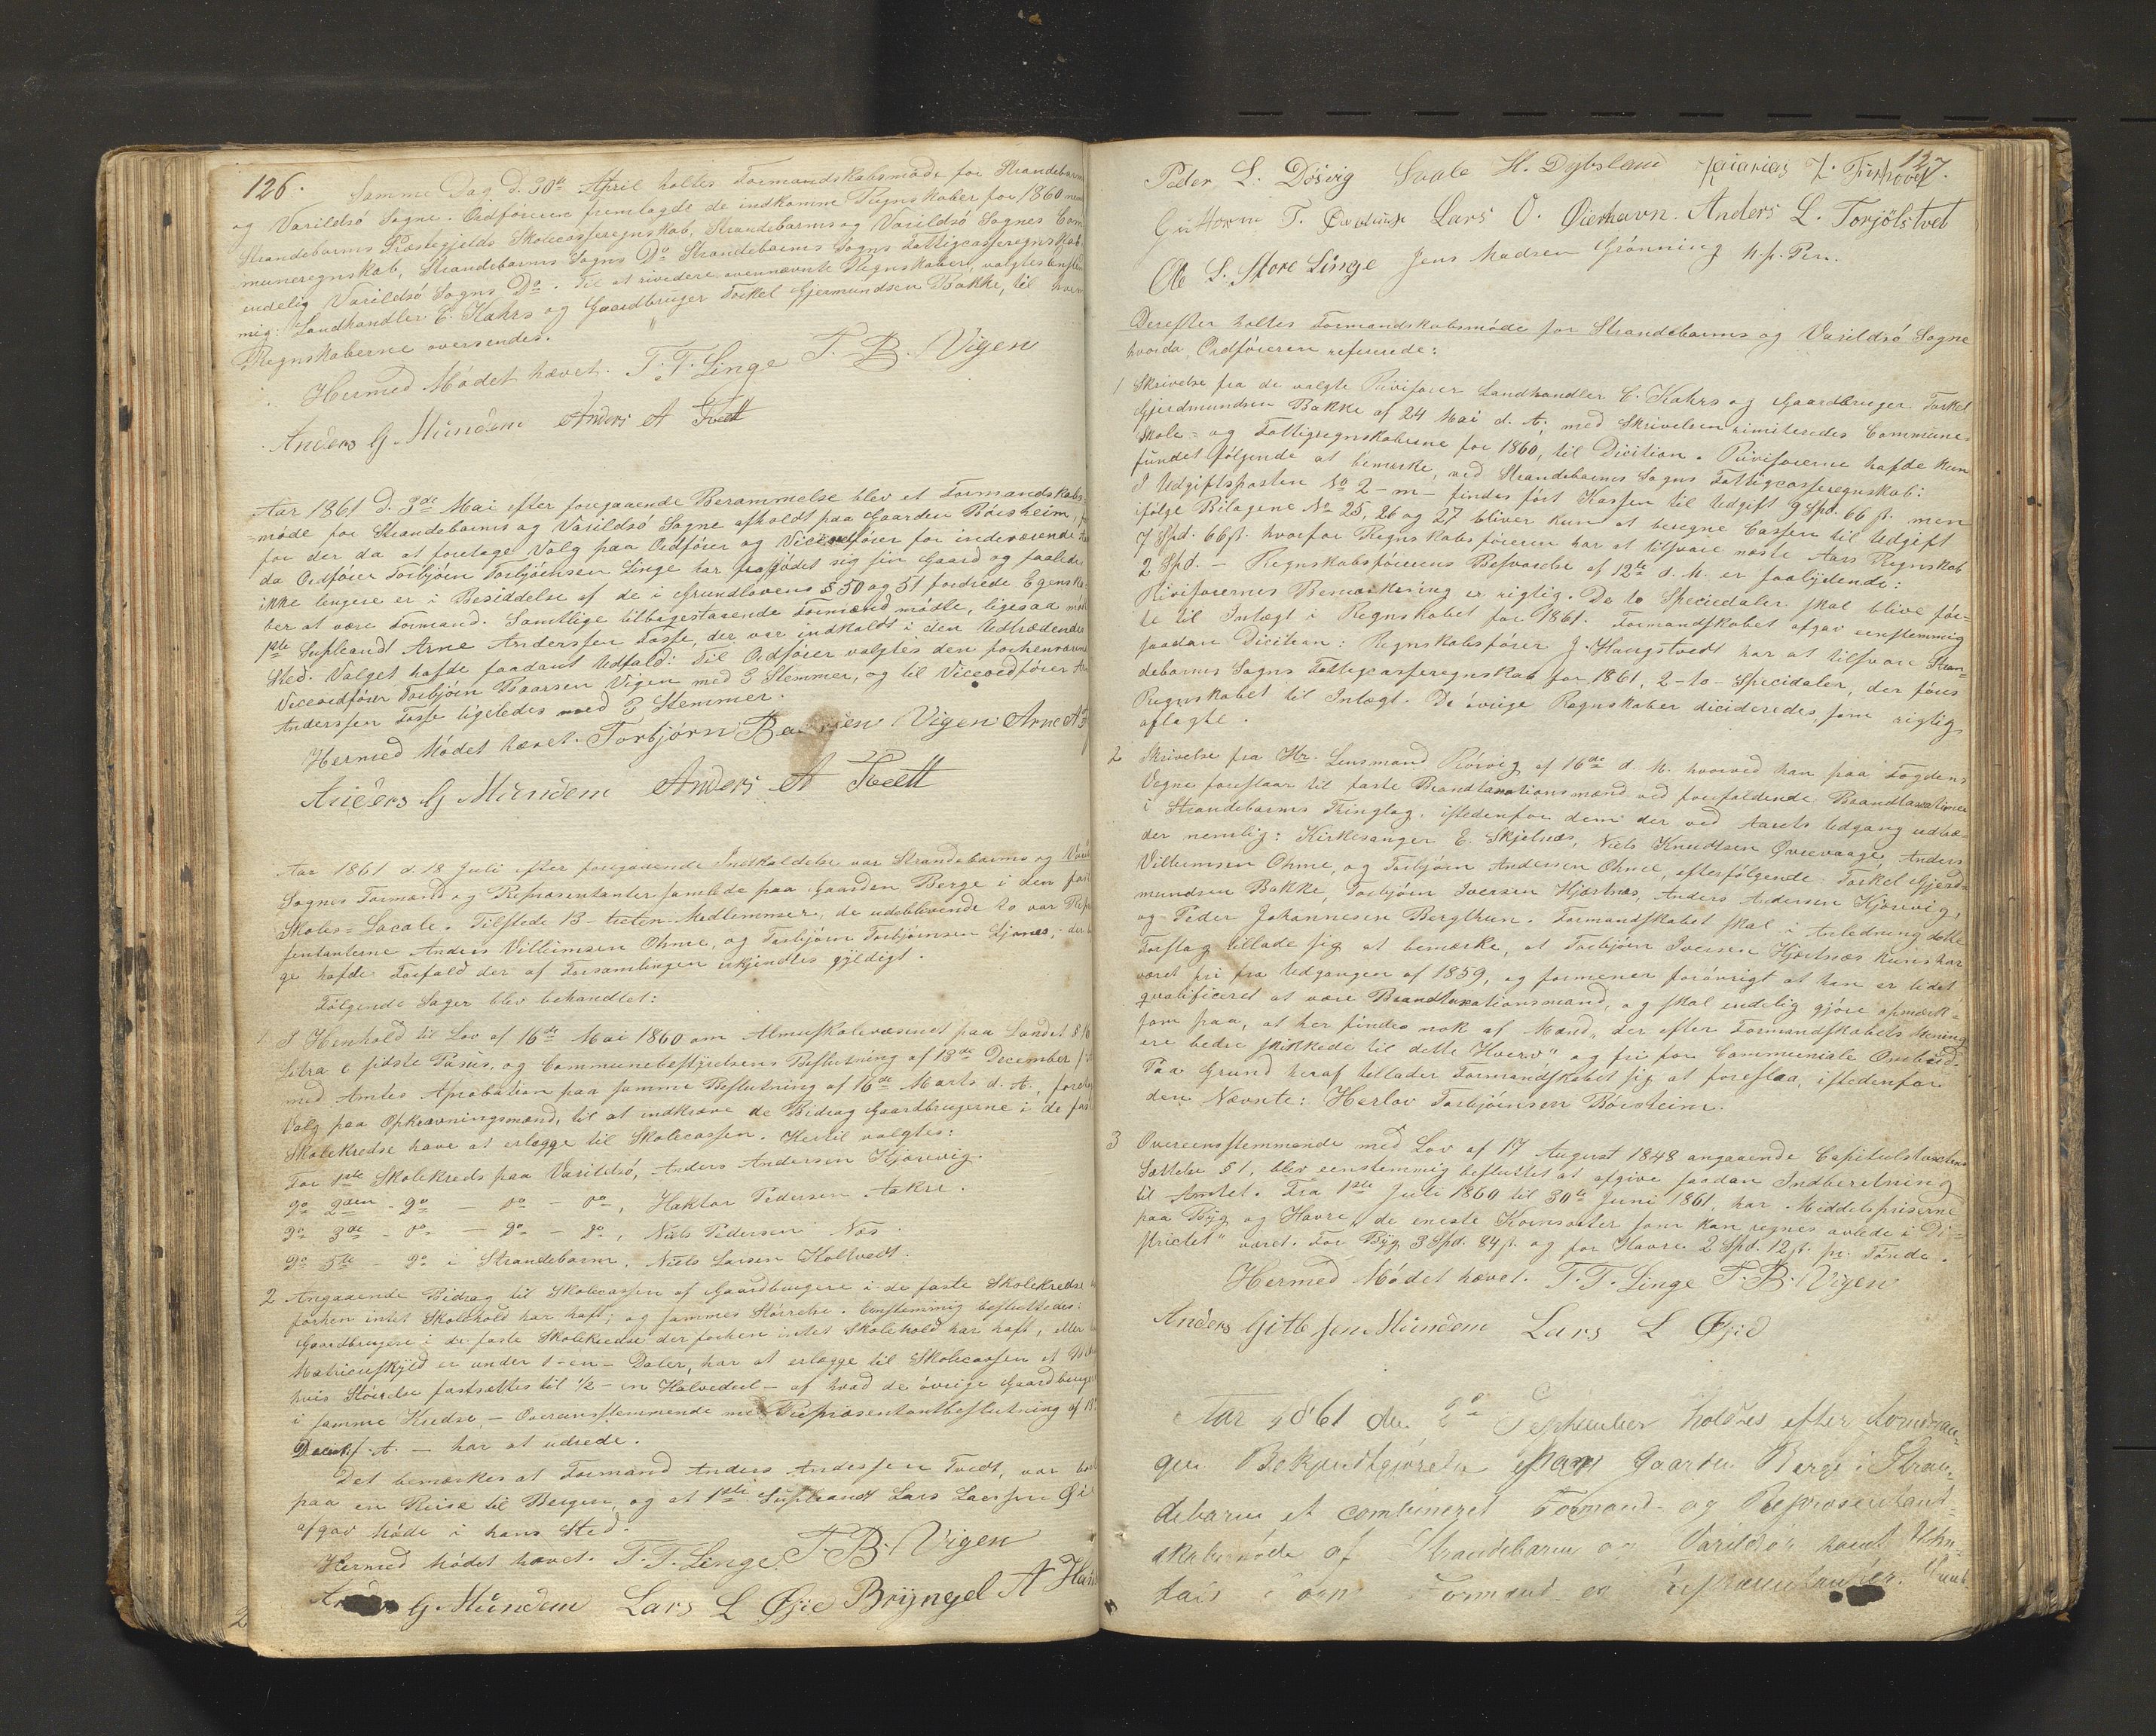 126.
Samme Dag d. 30te April holtes Formandskabsmøde for Strandebarms
og Varildsø Sogne. Ordføreren fremlagde de indkomne Regnskaber for 1860 nem
Strandebarms Præstegjelds Skolecasseregnskab, Strandebarms og Varildsø Sognes Com
muneregnskab, Strandebarms Sogns Do Strandebarms Sogns Fattigcasseregnskab,
endelig Varildsø Sogns Do. Til at rividere ovennævnte Regnskaber, valgtes
mig: Landhandler C. Kahrs og Gaardbruger Torkel Gjermundsen Bakke, til hvem
Regnskaberne oversendes.
Hermed Mødet hævet. T. T. Linge T. B. Vigen
Anders G Mundem Anders A Tvett
Aar 1861 d. 3de Mai efter foregaaende Berammelse blev et Formandskabs-
møde for Strandebarms og Varildsø Sogne afholdt paa Gaarden Børsheim,
for der da at foretage Valg paa Ordfører og Viceordfører for indeværende
da Ordfører Torbjørn Torbjørnsen Linge har frasjødet sig sin Gaard og saaledes
ikke lengere er i Besiddelse af de i Grundlovens § 50 og 51 fordrede Egenska
ber at være Formand. Samtlige tilbagestaaende Formænd mødte, ligesaa mødt
1ste Supleandt Arne Anderssen Fosse, der var indkaldt i den Udtrædendes
Sted. Valget hafde saadant Udfald: Til Ordfører valgtes den forhenværende
Viceordfører Torbjørn Baarsen Vigen med 3 Stemmer, og til Viceordfører Arne
Anderssen Fosse ligeledes med 3 Stemmer.
Hermed Mødet hævet. Torbjørn Baarsen Vigen Arne A F
Anders G Mundem Anders A Tvett
Aar 1861 d. 18 Juli efter foregaaende Indkaldelse var Strandebarms og Varild
Sognes Formænd og Repræsentanter samlede paa Gaarden Berge i den faste
Skoles-Locale. Tilstede 13-tretten-Medlemmer, de udeblivende to var Repræ
sentanterne Anders Villumsen Ohme, og Torbjørn Torbjørnsen Ljones,
ge hafde Forfald der af Forsamlingen erkjendtes gyldigt.
Følgende Sager blev behandlet:
1 I Henhold til Lov af 16de Mai 1860 om Almueskolevæsenet paa Landet §
Litra c sidste Passus, og Communebestyrelsens Beslutning af 13de December
med Amtes Aprobation paa samme Beslutning af 16de Marts d. A., foretog
Valg paa Opkrævningsmænd, til at indkræve de Bidrag Gaardbrugerne i de faste
Skolekredse have at erlægge til Skolecassen. Hertil valgtes:
For 1ste Skolekreds paa Varildsø, Anders Andersen Kjærevig.
Do 2den - Do - Do - Do, Haktor Pedersen Aakre.
Do 3de - Do - Do - Do, Niels Pedersen Næs.
Do 5te Do i Strandebarm, Niels Larsen Koltvedt.
2 Angaaende Bidrag til Skolecassen af Gaardbrugere i de faste Skolekredse
forhen intet Skolehold har haft; og sammes Størrelse. Enstemmig besluttedes:
Gaardbrugere i de faste Skolekredse der forhen intet Skolehold har haft, eller
Matriculskyld er under 1-en-Daler, har at erlægge til Skolecassen et Bidr
hvis Størrelse fastsættes til 1/2-en Halvedeel- af hvad de øvrige Gaardbruger
i samme Kredse, - Overensstemmende med Repræsentantbeslutning af 13
Decemb. f. A. - har at udrede.
Det bemærkes at Formand Anders Anderssen Tvedt, var
paa en Reise til Bergen, og at 1ste Supleandt Lars Larssen Øi
afgav Møde i hans Sted.
Hermed Mødet hævet. T. T. Linge. T. B. Vigen
G Mundem Lars L Øjie Brijngel A
127.
Peder L. Døsvig H. Dybsland Zacarias Z.
Guttorm T. Lars O. Øierhavn. Anders L. Torjølstvet
Ole L. Store Linge Jens Madsen Grønning h. p. Pen.
Derefter holtes Formandskabsmøde for Strandebarms og Varildsø Sogne
hvorda Ordføreren refererede:
1 Skrivelse fra de valgte Revisorer Landhandler C. Kahrs og Gaardbruger Torkel
Gjerdmundsen Bakke af 24 Mai d. A.; med Skrivelsen rimiteredes Commune-
Skole- og Fattigregnskaberne for 1860, til Dicition. Revisorerne hafde kun
fundet følgende at bemærke, ved Strandebarms Sogns Fattigcasseregnskab:
I Udgiftsposten No 2 - m - findes ført Kassen til Udgift 9 Spd. 66 ß. men
ifølge Bilagene No 25, 26 og 27 bliver kun at beregne Cassen til Udgift
7 Spd. 66 ß. hvorfor Regnskabsføreren har at tilsvare næste Aars Regnskab
2 Spd. - Regnskabsførerens Besvarelse af 12te d. M. er saalydende:
Rivisorernes Bemærkning er rigtig. De to Speciedaler skal blive før-
te til Indtægt i Regnskabet for 1861. Formandskabet afgav eenstemmig
saadan Dicition: Regnskabsfører J. Haugstvedt har at tilsvare Stran-
debarms Sogns Fattigcasseregnskab for 1861, 2-to-Specidaler, der føres
Regnskabet til Indtægt. De øvrige Regnskaber dicideredes, som rigtig
aflagte.
2 Skrivelse fra Hr. Lensmand Rørvig af 16de d. M. hvorved han paa Fogdens
Vegne foreslaar til faste Brandtaxationsmænd ved forefaldende Brandtaxationer
i Strandebarms Thinglag, istedenfor dem der ved Aarets Udgang udtræ-
der nemlig: Kirkesanger E. Skjelnæs, Niels Knudtsen Øvrevaage, Anders
Villumsen Ohme, og Torbjørn Andersen Ohme, efterfølgende Torkel Gjerd-
mundsen Bakke, Torbjørn Iversen Hjartnæs, Anders Andersen Kjærevig,
og Peder Johannesen Bergthun. Formandskabet skal i Anledning dette
Forslag tillade sig at bemærke, at Torbjørn Iversen Hjertnæs kuns har
været fri fra Udgangen af 1859, og formener forøvrigt at han er lidet
qvalificeret at være Brandtaxationsmand, og skal endelig gjøre opmærk-
som paa, at her findes nok af Mænd "der efter Formandskabets Mening
ere bedre skikkede til dette Hverv" og fri for Communale Ombud.
Paa Grund heraf tillader Formandskabet sig at foreslaa, istedenfor
den Nævnte: Herlov Torbjørnsen Børsheim.
3 Overeensstemmende med Lov af 17 August 1848 angaaende Capitulstaxtens
Sættelse § 1, blev eenstemmig besluttet at afgive saadan Indberetning
til Amtet. Fra 1ste Juli 1860 til 30te Juni 1861, har Middelpriserne
paa Byg og Havre "de eneste Kornsorter som kan regnes avlede i Di-
strictet" været. For Byg 3 Spd. 84 ß. og for Havre 2 Spd. 12 ß. pr. Tønde.
Hermed Mødet hævet. T. T. Linge T. B. Vigen
Anders Gitlesen Mundem Lars L Øjie
Aar 1861 den 2den September holdtes efter
gen Bekjendtgjørelse paa Gaarden Berge i Stran-
debarm et combineret Formand- og Repræsentant-
skabsmøde af Strandebarm og Varildsø samt
Sogns Formænd og Repræsentanter.